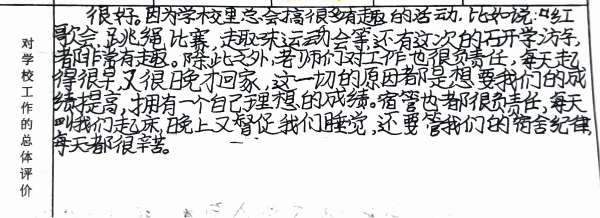 对学校工作的总体评价
很好。因为学校里总会搞很多有趣的活动,比如说:红
歌会,跳绳比赛,趣味运动会等,还有这次的石开学访亲,
都非常有趣。除此之外,老师们对工作也很负责任,每天起
得很早,又很晚才回家,这一切的原因都是想要我们的成
绩提高,拥有一个自己理想的成绩。宿管也都很负责任,每天
叫我们起床,晚上又督促我们睡觉,还要管我们的宿舍纪律,
每天都很辛苦。